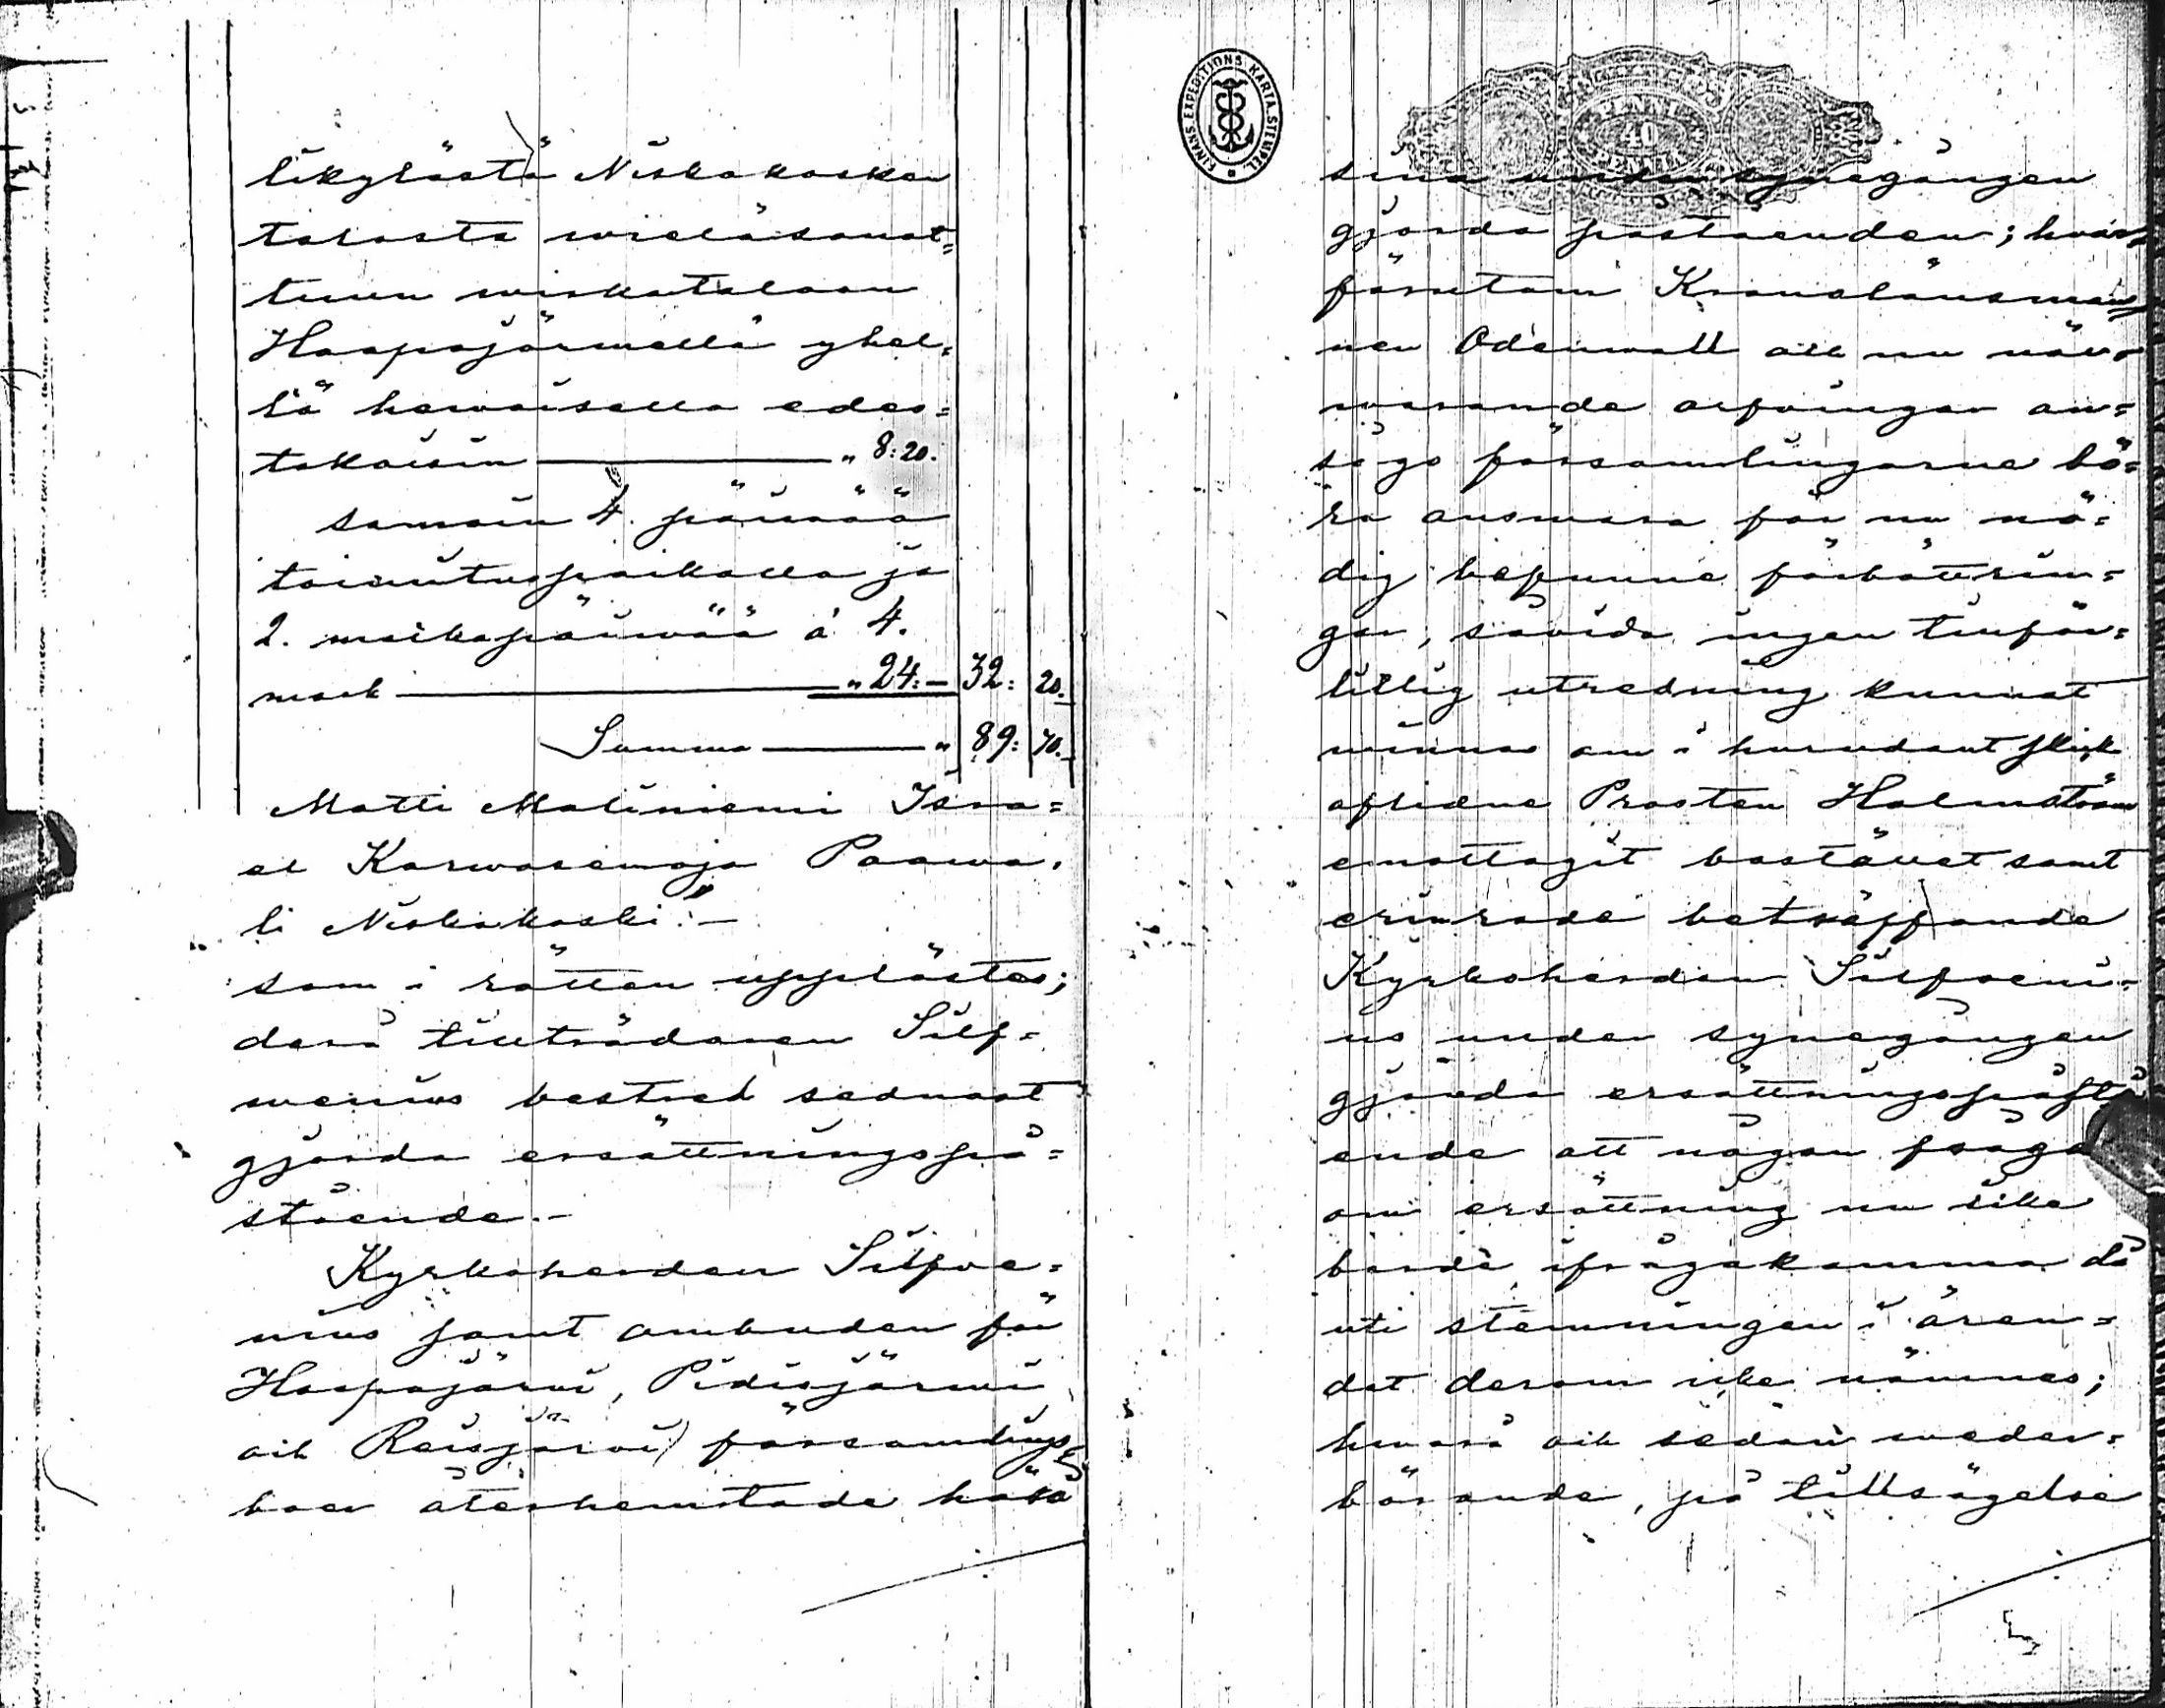 likylästä Niskakosken
talosta wieläsanot=
tuun wirkataloon
Haapajärwellä yhel=
lä hewoisella edes=
takaisin — " 8:20.
samoin 4. päiwää
toimituspaikalla ja
2. matkapäiwää á 4.
mark — " 24:— 32: 20.
Summa — " 89: 70.
Matti Maliniemi Isra=
el Karwosenoja Paawa=
li Niskakoski:—
som i rätten upplästes;
derå tillträdaren Silf=
wenius bestred sednast
gjorda ersättningspå=
stående.—
Kyrkoherden Silfve=
nius samt ombuden för
Haapajärvi, Pidisjärwi
och Reisjärvi församlings=
boer återhemtade hära
FINANS-EXPEDITIONS KARTA. STEMPEL
PENNI
40
PENNIÄ
sina under synegången
gjorda påståenden; hvar=
förutom Kronolänsman=
nen Odenwall och nu när=
warande arfvingar an=
sågo församlingarne bö=
ra answara för nu nö=
dig befunne förbättrin=
gar, såvida ingen tillför=
litlig utredning kunnat
winnas om i hurudant skick
aflidne Prosten Holmström
emottagit bostället samt
erinrade beträffande
Kyrkoherden Silfveni=
us under synegången
gjorda ersättningspåstå
ende att någon fråga
om ersättning nu icke
borde ifrågakomma då
uti stemningen i ären=
det derom icke nämnes;
hwarå och sedan weder=
börande, på tillsägelse